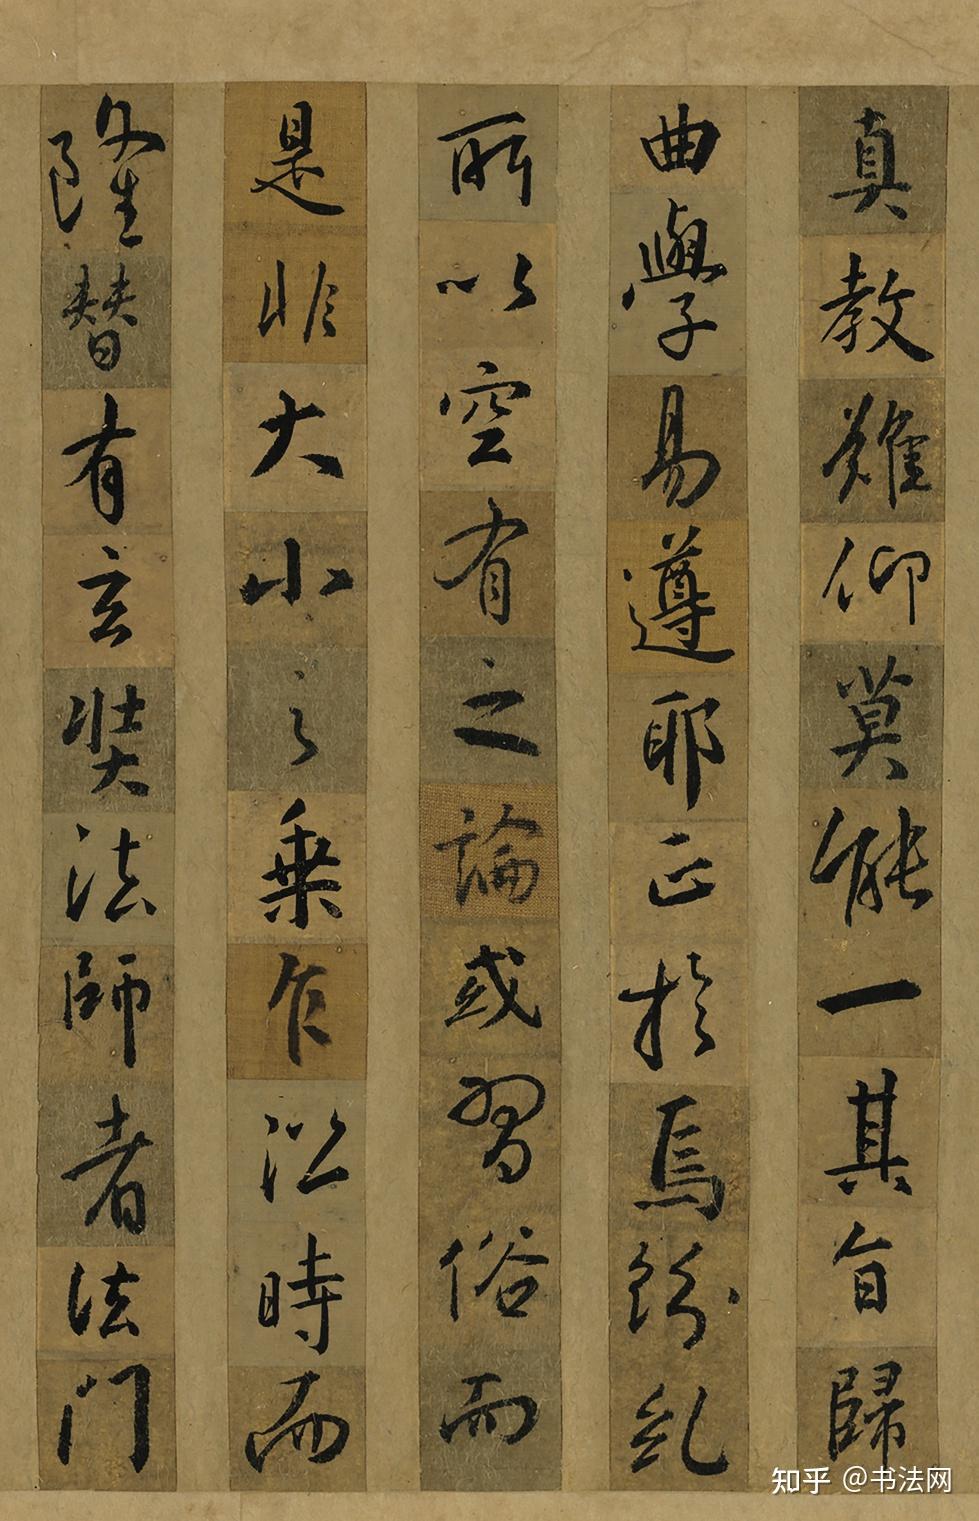 真教難仰莫能一其旨歸
曲學易遵耶正於焉紛乱
所以空有之論或習俗而
是非大小之乗乍沿時而
隆替有玄奘法師者法門
知乎 @书法网